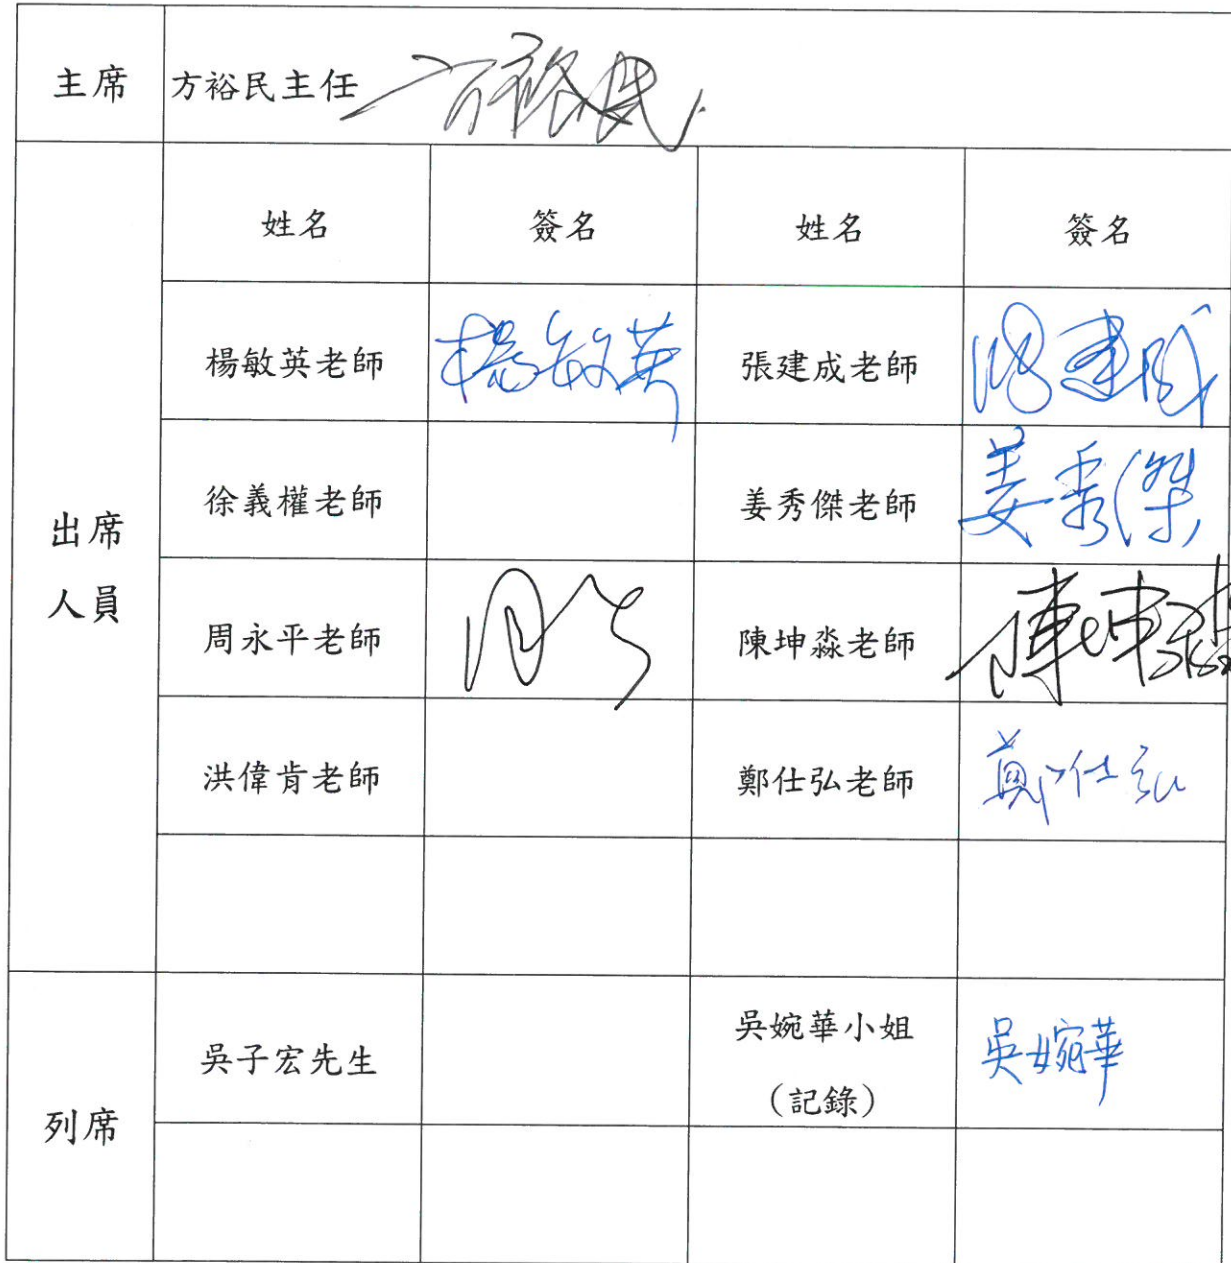 主席 方裕民主任 方裕民
姓名 簽名 姓名 簽名
楊敏英老師 楊敏英 張建成老師 張建成
徐義權老師 姜秀傑老師 姜秀傑
出席
人員
周永平老師 陳坤淼老師 陳坤淼
洪偉肯老師 鄭仕弘老師 鄭仕弘
列席
吳子宏先生 吳婉華小姐 吳婉華
(記錄)